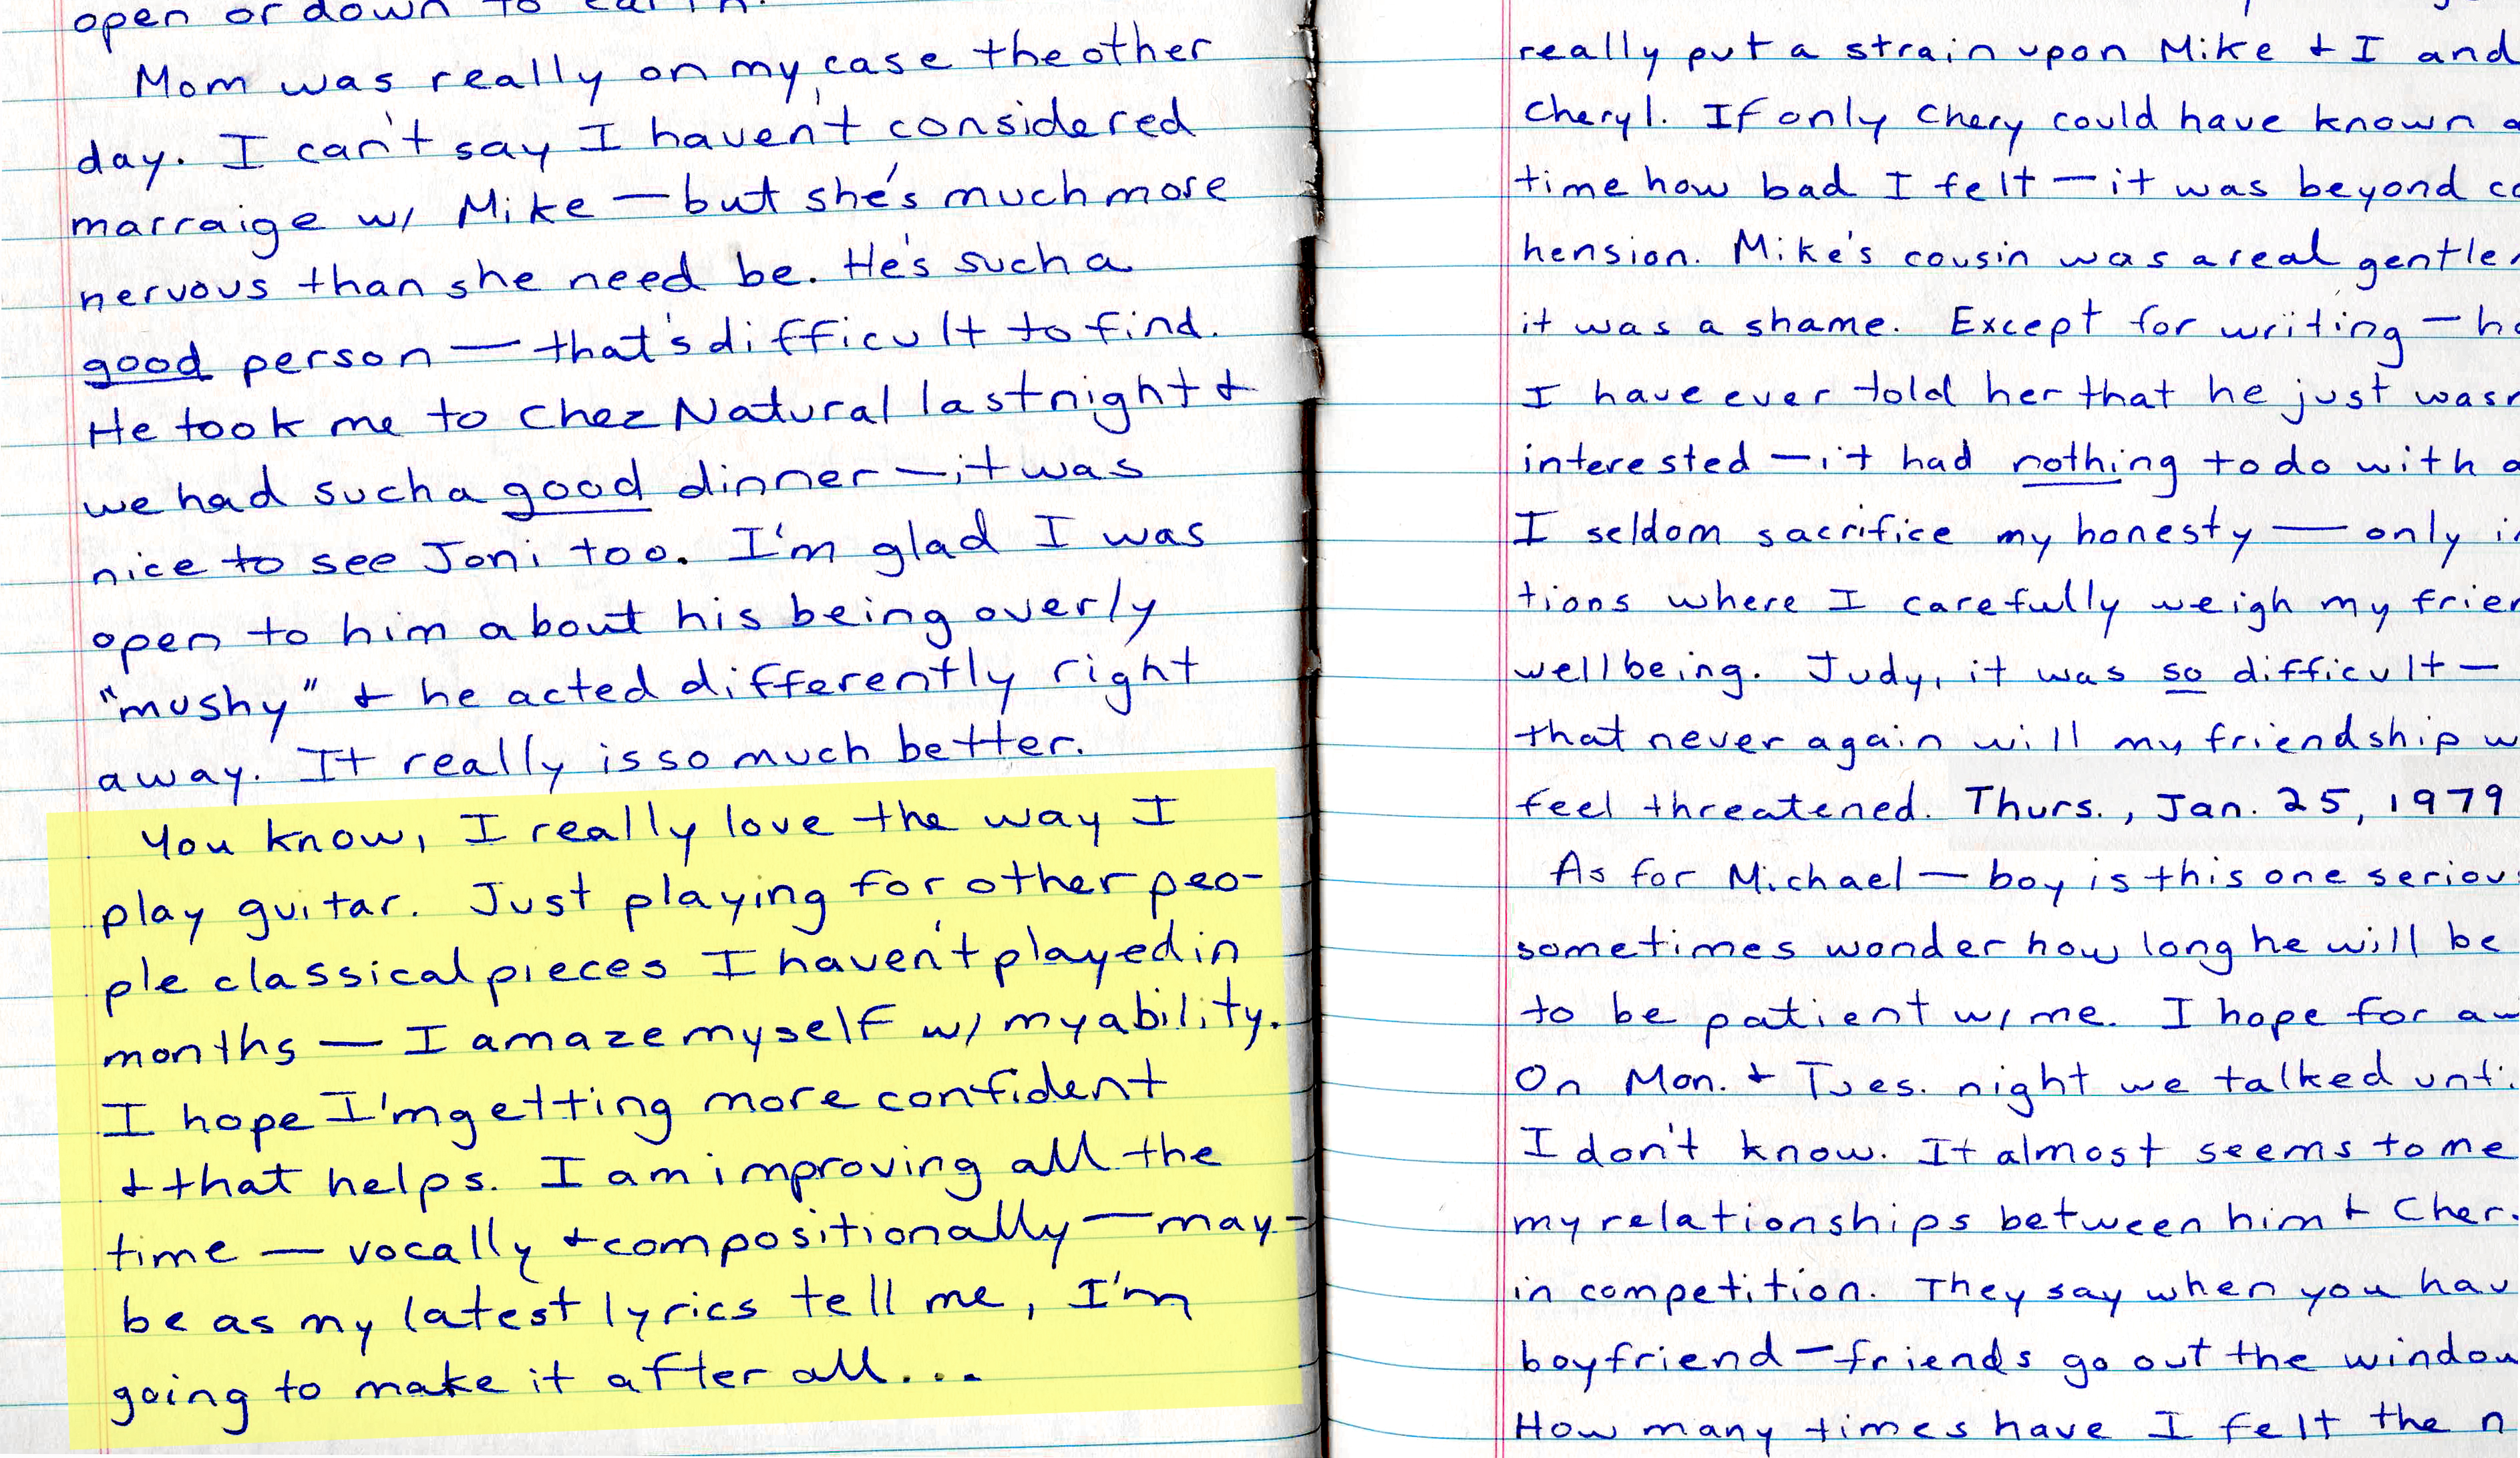 open or down to earth.
Mom was really on my case the other
day. I can't say I haven't considered
marraige w/ Mike — but she's much more
nervous than she need be. He's such a
good person — that's difficult to find.
He took me to Chez Natural last night &
we had such a good dinner — it was
nice to see Joni too. I'm glad I was
open to him about his being overly
"mushy" & he acted differently right
away. It really is so much better.
You know, I really love the way I
play guitar. Just playing for other peo-
ple classical pieces I haven't played in
months — I amaze myself w/ my ability.
I hope I'm getting more confident
& that helps. I am improving all the
time — vocally & compositionally — may-
be as my latest lyrics tell me, I'm
going to make it after all...
really put a strain upon Mike & I and
Cheryl. If only Chery could have known
time how bad I felt — it was beyond co
hension. Mike's cousin was a real gentle
it was a shame. Except for writing —
I have ever told her that he just was
interested — it had nothing to do with
I seldom sacrifice my honesty — only
tions where I carefully weigh my frien
well being. Judy, it was so difficult —
that never again will my friendship w
feel threatened. Thurs., Jan. 25, 1979
As for Michael — boy is this one seriou
sometimes wonder how long he will be
to be patient w/ me. I hope for
On Mon. & Tues. night we talked unti
I don't know. It almost seems to me
my relationships between him & Cher.
in competition. They say when you hav
boyfriend — friends go out the window
How many times have I felt the n